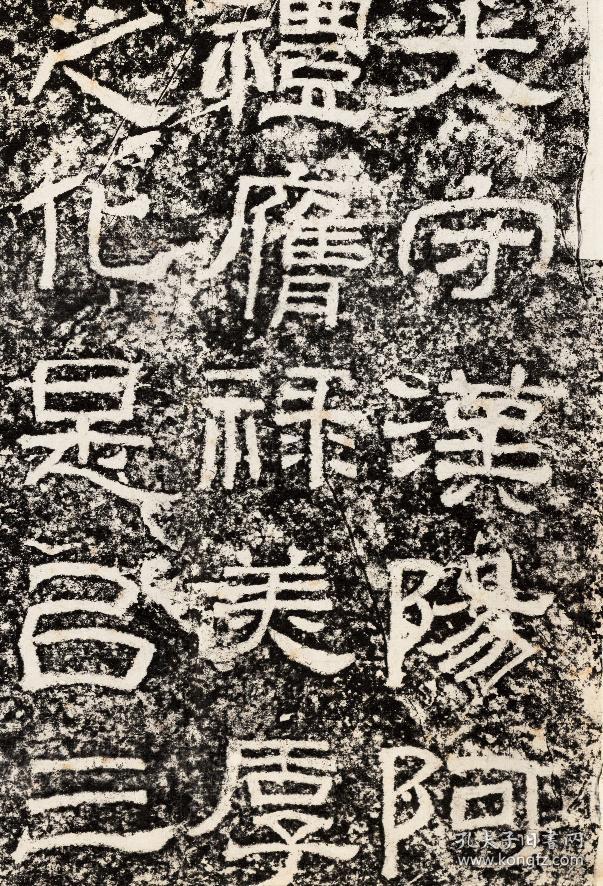 太守漢陽阿
禮膺祿美厚
之化是㠯三
孔夫子旧书网
www.kongfz.com